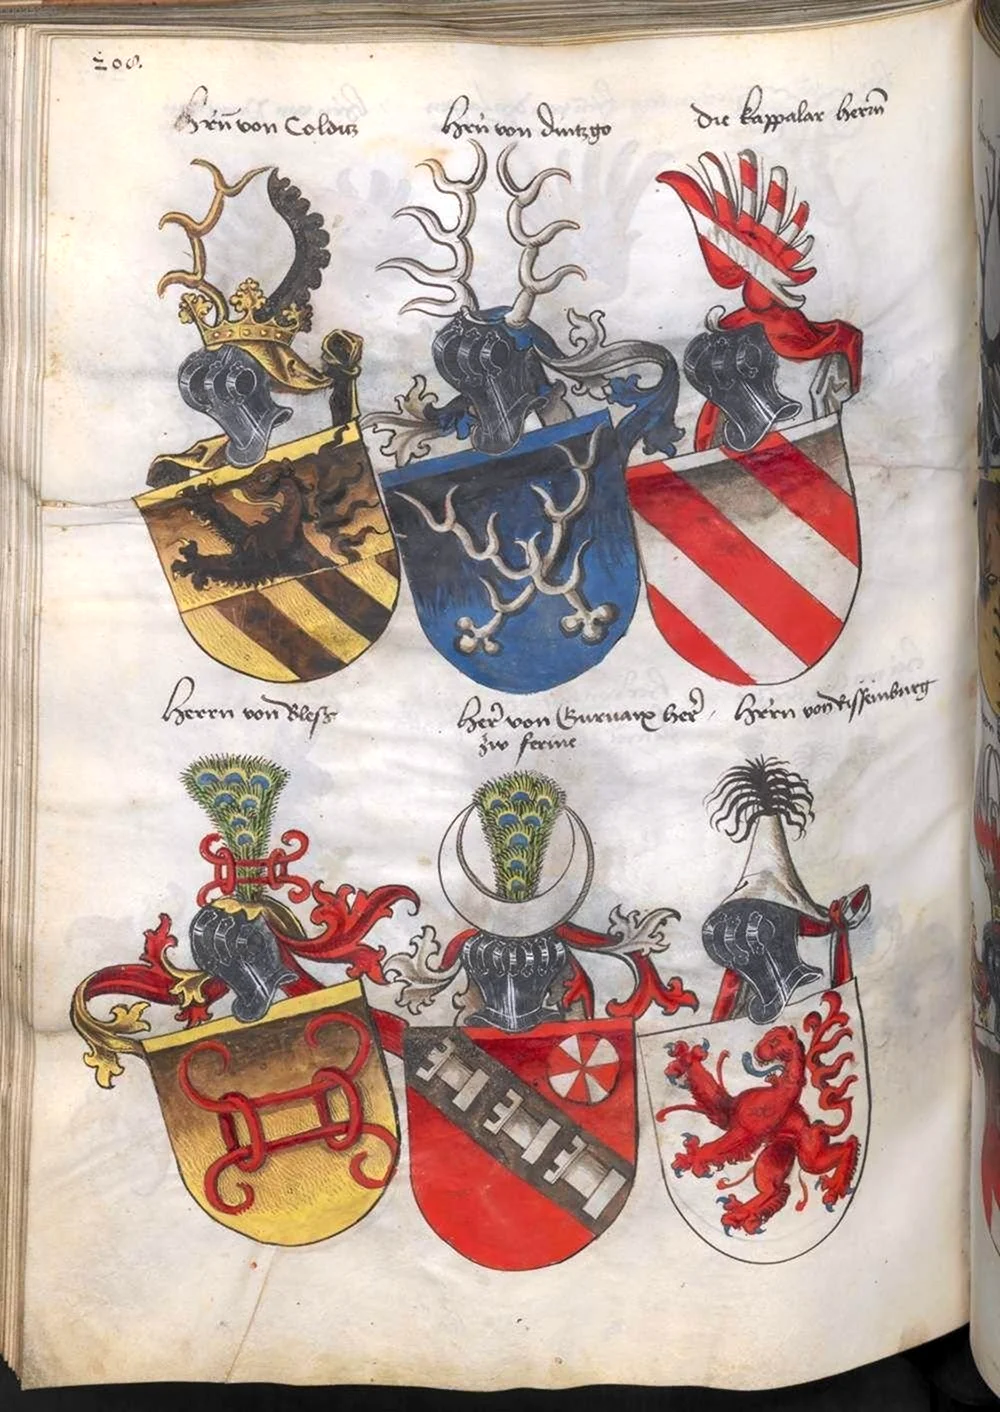 208.
Hrn̄ von Colditz
Hrn̄ von dintzgo
die kappalar herrn̄
Herrn von Bless
Her̄ von Gurvarx her̄
zw ferine
Hrrn von Rissenburg